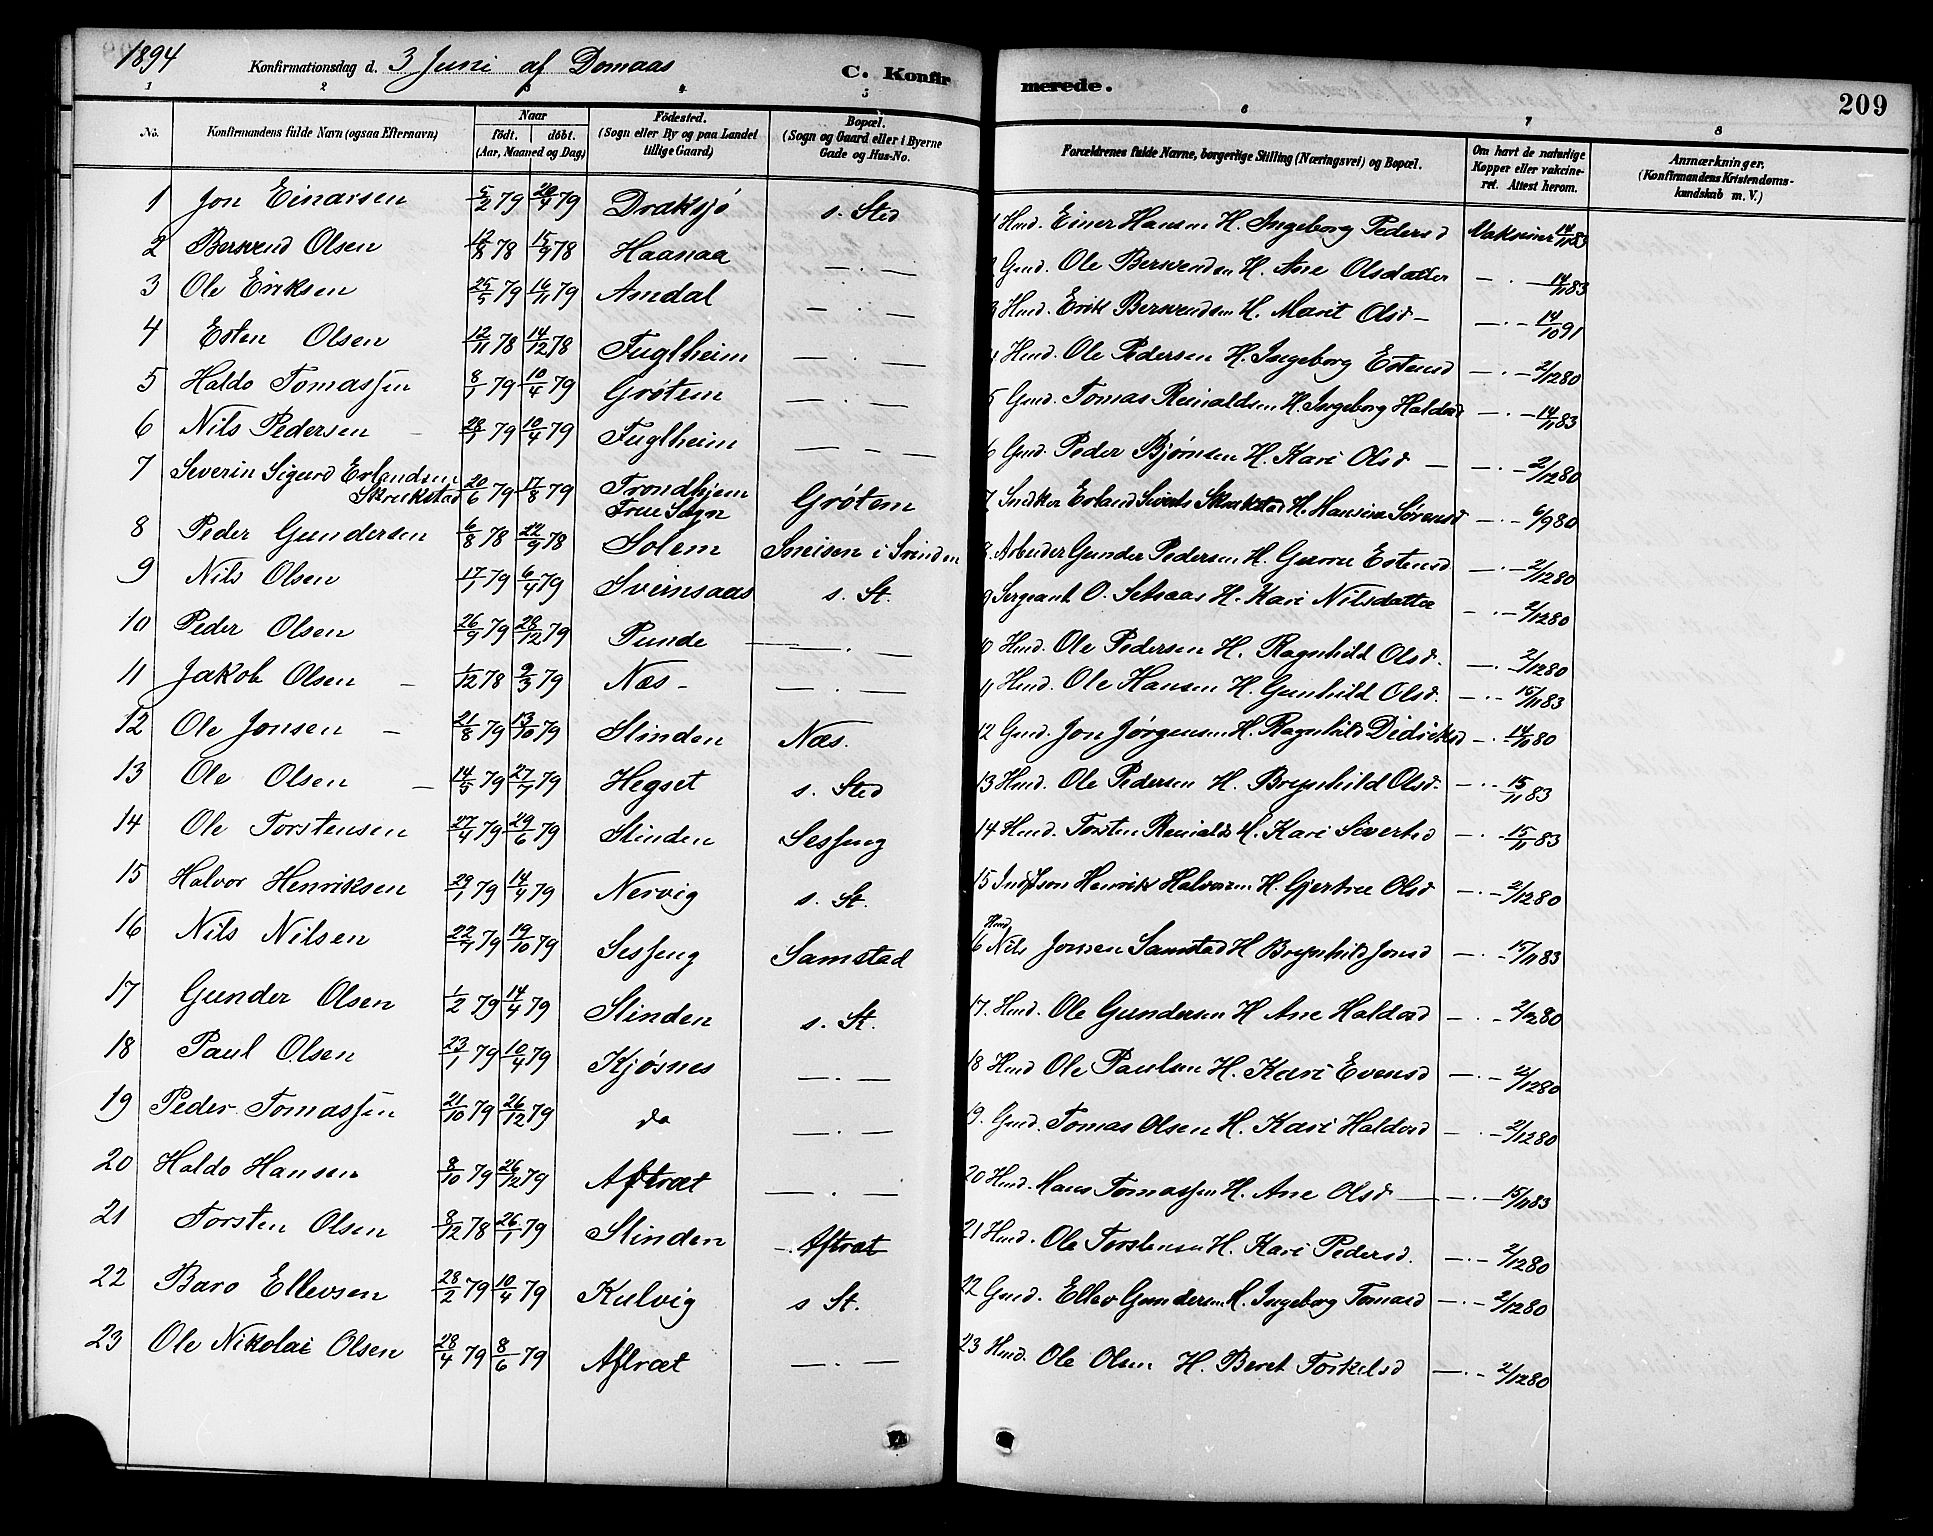 1894
Konfirmationsdag d. 3 Juni af Domaas
C. Konfirmerede.
209
1 2 3 4 5 6 7 8
No.
Konfirmandens fulde Navn (ogsaa Efternavn)
Naar
födt. döbt.
(Aar, Maaned og Dag)
Födested.
(Sogn eller By og paa Landet tillige Gaard)
Bopæl.
(Sogn og Gaard eller i Byerne Gade og Hus-No.
Forældrenes fulde Navne, borgerlige Stilling (Næringsvei) og Bopæl.
Om havt de naturlige Kopper eller vakcineret. Attest herom.
Anmærkninger.
(Konfirmandens Kristendomskundskab m. V.)
1 Jon Einarsen 5/2 79 79 Draksjø s. Sted 1 Hmd. Einer Hansen H. Ingeborg Pedersd Vaksiner 14/11 83
2 Bersvend Olsen 78 15/9 78 Haanaa — . — 2 Gmd. Ole Bersvendsen H. Ane Olsdatter — . — 14/11 83
3 Ole Eriksen 25/5 79 16/11 79 Amdal — . — 3 Hmd. Erik Bersvendsen H. Marit Olsd — — . — 14/10 91
4 Esten Olsen 12/11 78 14/12 78 Fuglheim — . — 4 Hmd. Ole Pedersen H. Ingeborg Estensd — . — 2/12 80
5 Haldo Tomassen 8/1 79 10/4 79 Grøtem — . — 5 Gmd. Tomas Reinaldsen H. Ingeborg Haldosd — . — 14/11 83
6 Nils Pedersen 28/1 79 10/4 79 Fuglheim — — — 6 Gmd. Peder Bjørnsen H. Kari Olsd — — . — 2/12 80
7 Severin Sigurd Erlandsen Skrukstad 20/6 79 17/8 79 Trondhjem Frue Sogn Grøtem 7 Snedker Erland Siverts Skrukstad H. Hansine Sørensd — . — 6/9 80
8 Peder Gundersen 6/8 78 78 Solem Sneisen i 8. Arbeider Gunder Pedersen H. Gurru Estensd — . — 2/12 80
9 Nils Olsen 17/1 79 6/4 79 Sveinsaas s. St. 9 Sergeant O. Selsaas H. Kari Nilsdatter — . — 2/12 80
10 Peder Olsen 26/9 79 28/12 79 Punde — . — 10 Hmd. Ole Pedersen H. Ragnhild Olsd. — . 2/12 80
11 Jakob Olsen 1/12 78 9/3 79 Næs — . — 11 Hmd. Ole Hansen H. Gunhild Olsd. — . — 15/11 83
12 Ole Jonsen 21/8 79 13/10 79 Slinden Næs. 12 Gmd. Jon Jørgensen H. Ragnhild Didriksd — . 14/10 80
13 Ole Olsen 14/5 79 27/7 79 Hegset s. Sted 13 Hmd. Ole Pedersen H. Brynhild Olsd. — . . 15/11 83
14 Ole Torstensen 27/4 79 29/6 79 Slinden Sesseng 14 Hmd. Torsten Reinalds H. Kari Sivertsd — . 15/11 83
15 Halvor Henriksen 29/1 79 14/4 79 Nervig s. St. 15 Henrik Halvorsen H. Gjertru Olsd — . — 2/12 80
16 Nils Nilsen 79 19/10 79 Sesseng Samstad 16 Hmd Nils Jonsen Samstad H Brynhild Jonsd — . — 15/11 83
17 Gunder Olsen 1/2 79 14/4 79 Slinden s. St. 17. Hmd. Ole Gundersen H Ane Haldosd — . — 2/12 80
18 Paul Olsen 23/1 79 10/4 79 Kjøsnes — . — 18 Hmd Ole Paulsen H. Kari Evensd — . — 2/12 80
19 Peder Tomassen 21/10 79 26/12 79 do — . — 19. Gmd. Tomas Olsen H. Kari Haldosd — . — 2/12 80
20 Haldo Hansen 8/10 79 26/12 79 Aftræt — . — 20 Hmd. Hans Tomassen H. Ane Olsd — — . — 15/11 83
21 Torsten Olsen 8/12 78 26/1 79 Slinden — . Aftræt 21 Hmd. Ole Torstensen H. Kari Pedersd. — . — 2/12 80
22 Baro Ellevsen 28/2 79 10/4 79 Kulvig s St. 22 Gmd. Ellev Gundersen H. Ingeborg Tomasd — . — 2/12 80
23 Ole Nikolai Olsen 28/4 79 8/6 79 Aftræt — . — 23 Hmd. Ole Olsen H. Beret Torkelsd — . — 2/12 80